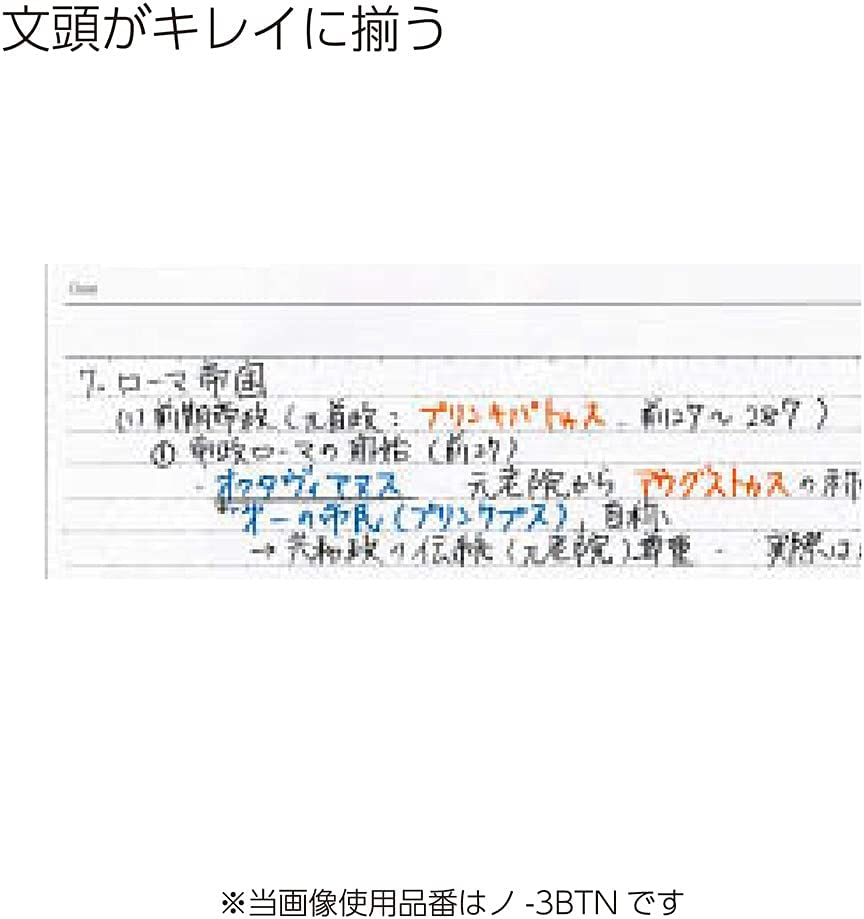 文頭がキレイに揃う
7. ローマ帝国
(1) 前期帝政(元首政:プリンキパトゥス 前27〜287)
① 帝政ローマの開始(前27)
・オクタヴィアヌス 元老院から アウグストゥスの称
"オーの市民(プリンケプス), 自称
→ 共和政の伝統(元老院)尊重 - 実際は
※当画像使用品番はノ-3BTNです